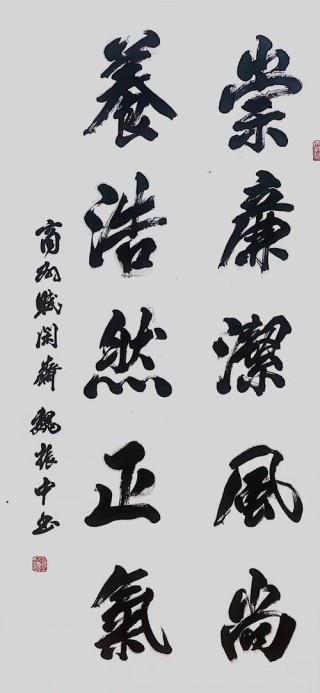 崇廉潔風尚
養浩然正氣
商賦閑齋魏振中书